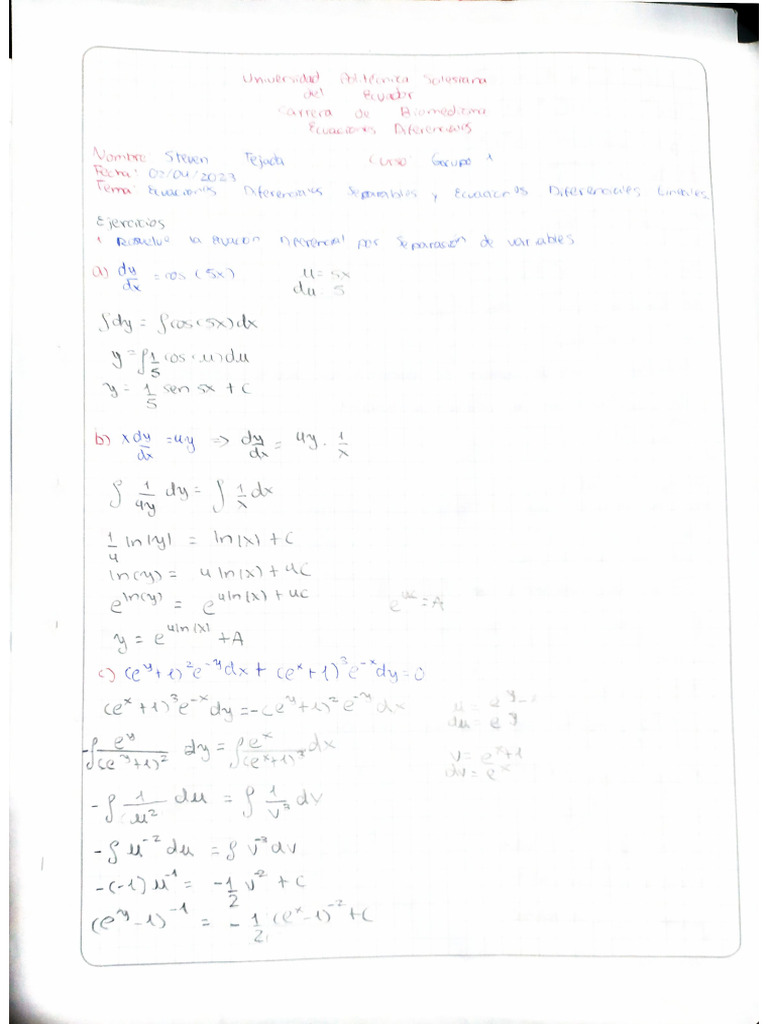 Universidad Politécnica Salesiana
del Ecuador
Carrera de Biomedicina
Ecuaciones Diferenciales
Nombre Steven Tejada Curso: Gorupo 1
Fecha: 02/04/2023
Tema: Ecuaciones Diferenciales Separables y Ecuaciones Diferenciales Lineales
Ejercicios
1 Resuelve la Ecuacion Diferencial por Separación de variables
a) dy/dx = cos (5x) u = 5x
du 5
∫dy = ∫cos(5x)dx
y = ∫1/5 cos(u)du
y = 1/5 sen 5x + C
b) x dy/dx = 4y => dy/dx = 4y · 1/x
∫ 1/4y dy = ∫ 1/x dx
1/4 ln|y| = ln|x| + C
ln(y) = 4 ln|x| + 4C
e^ln(y) = e^4ln|x| + 4C e^4C = A
y = e^4ln|x| + A
c) (e^y+1)^2 e^-y dx + (e^x+1)^3 e^-x dy = 0
(e^x+1)^3 e^-x dy = -(e^y+1)^2 e^-y dx u = e^y-
du = e^y
-∫ e^y/(e^y+1)^2 dy = ∫ e^x/(e^x+1)^3 dx v = e^x+1
dv = e^x
-∫ 1/u^2 du = ∫ 1/v^3 dv
-∫ u^-2 du = ∫ v^-3 dv
-(-1) u^-1 = -1/2 v^-2 + C
(e^y-1)^-1 = -1/2 (e^x-1)^-2 + C